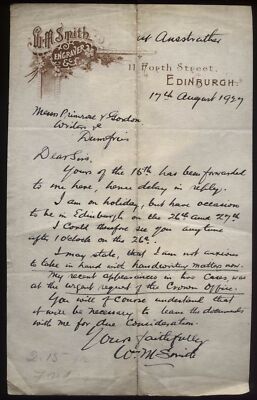 Wm. Smith
ENGRAVER
&c.
at Anstruther
11 Forth Street,
EDINBURGH.
17th August 1927
Messrs Primrose & Gordon
Writers &
Dumfries
Dear Sirs.
Yours of the 16th has been forwarded
to me here, hence delay in reply.
I am on holiday, but have occasion
to be in Edinburgh on the 26th and 27th
I could therefore see you any time
after 1 o'clock on the 26th.
I may state, that I am not anxious
to take in hand with handwriting matters now.
My recent appearances in his Cases was
at the urgent request of the Crown Office.
You will of course understand that
it will be necessary to leave the documents
with me for due consideration.
Yours faithfully
Wm Smith
2.15